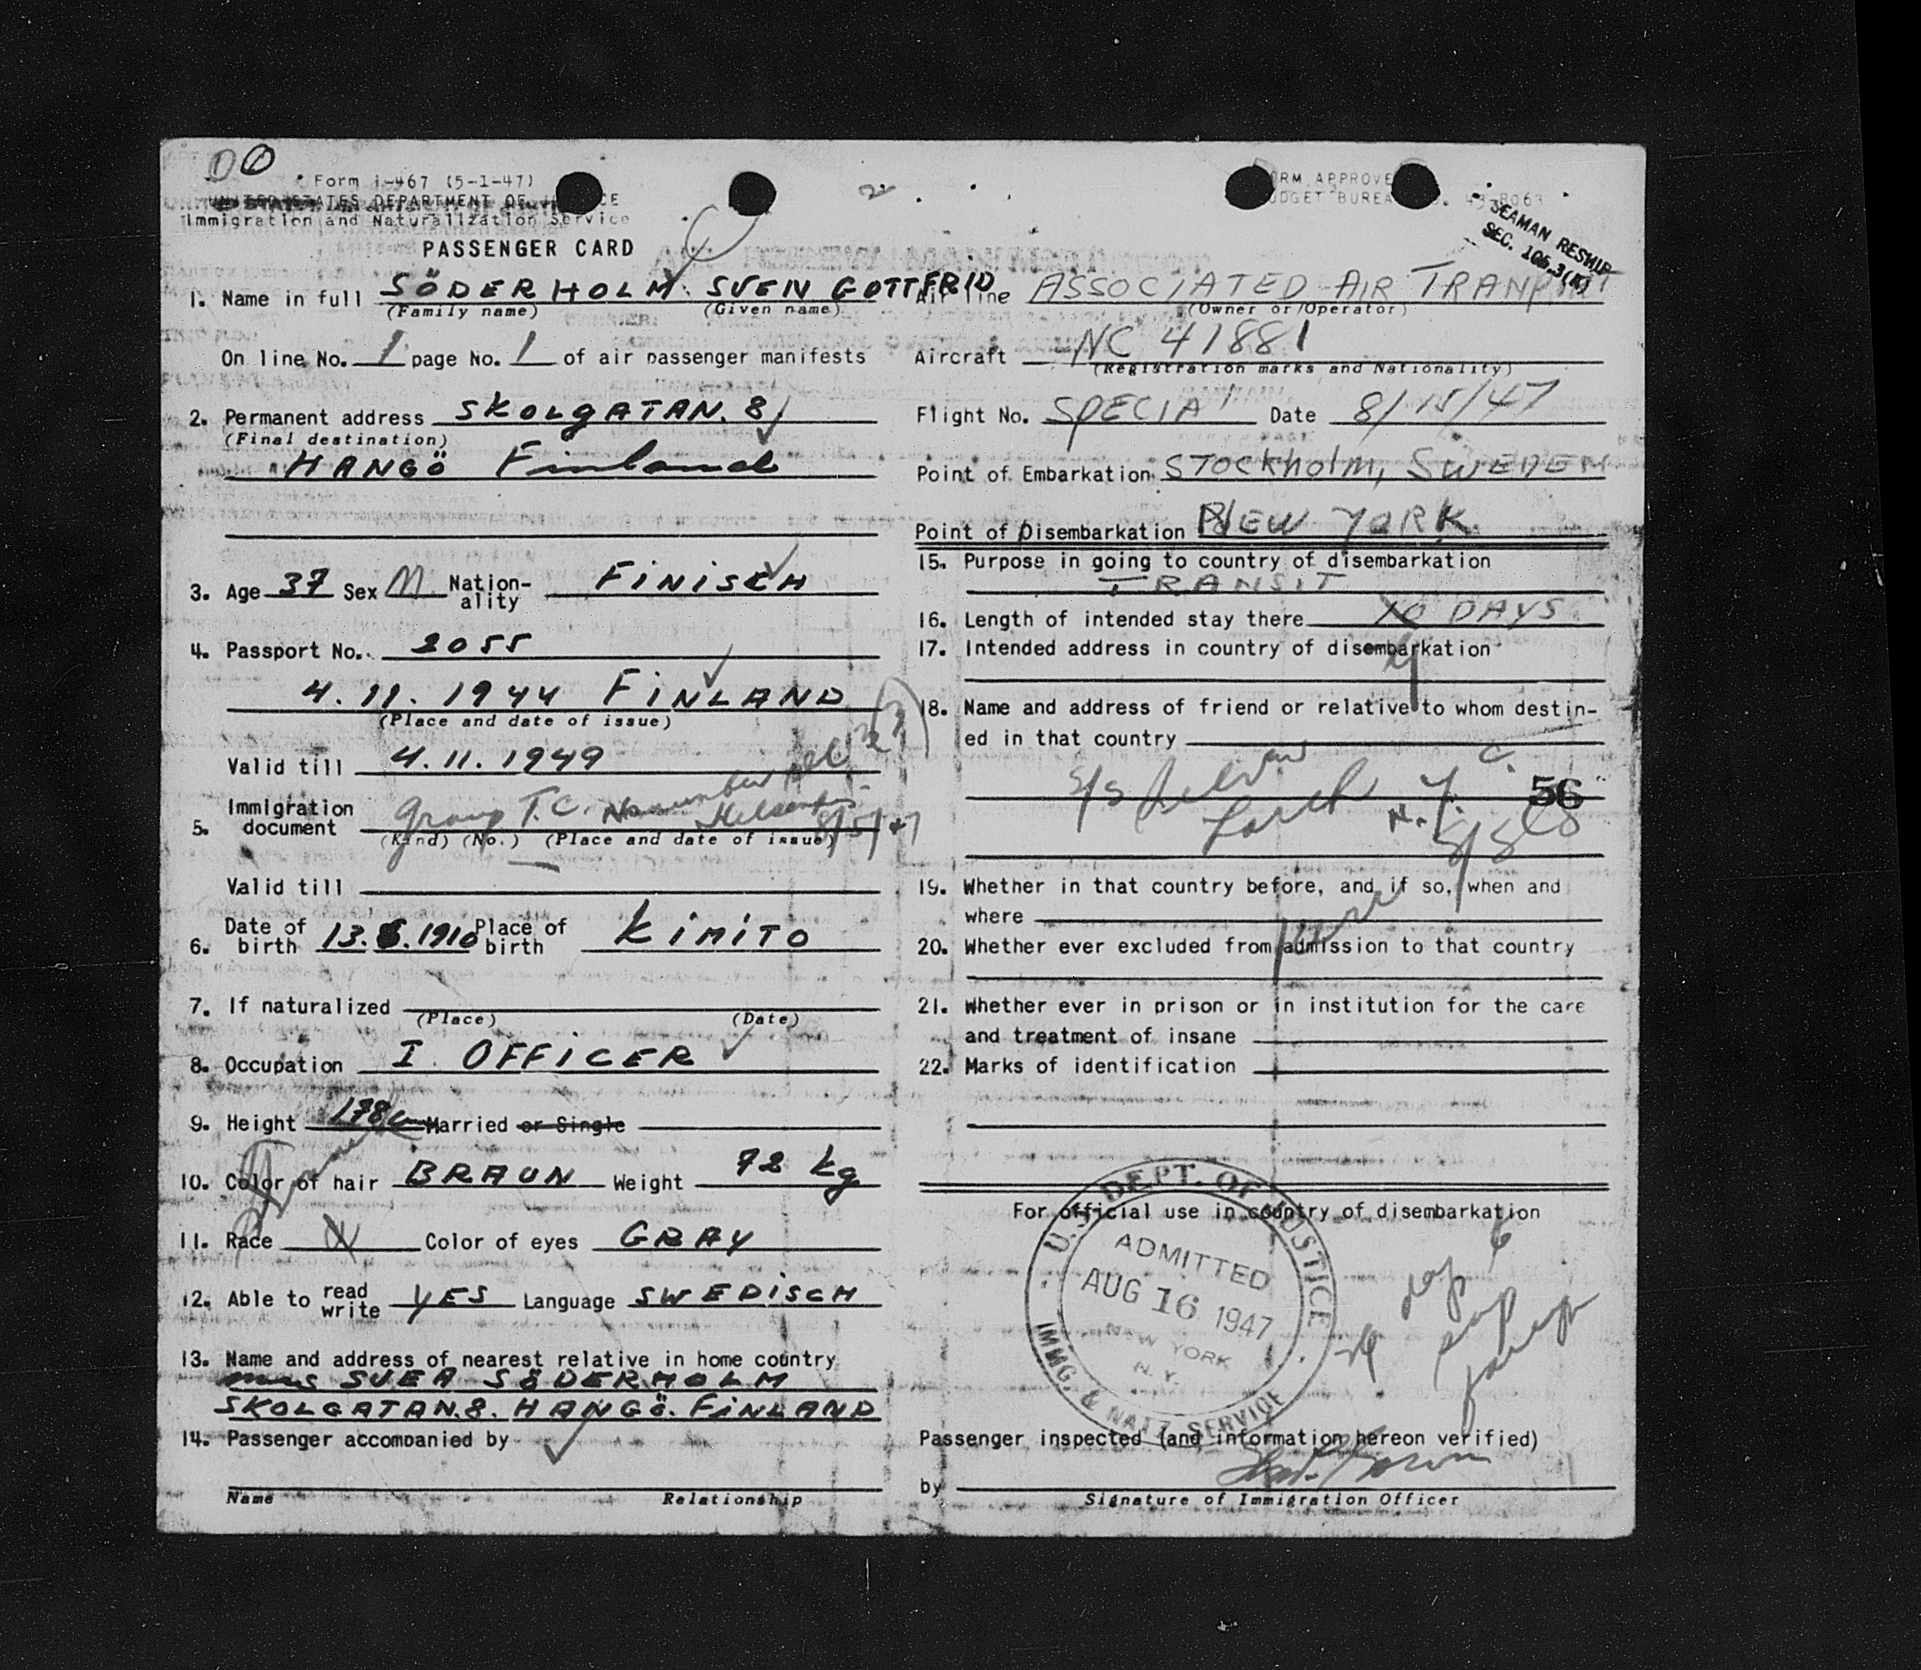 Form I-467 (5-1-47)
UNITED STATES DEPARTMENT OF
Immigration and Naturalization Service
PASSENGER CARD
1. Name in full SÖDERHOLM SVEN GOTTFRID
(Family name) (Given name)
On line No. 1 page No. 1 of air passenger manifests
2. Permanent address SKOLGATAN. 8
(Final destination)
HANGÖ Finland
3. Age 37 Sex M Nation-ality FINISCH
4. Passport No. 2055
4. 11. 1944 FINLAND
(Place and date of issue)
Valid till 4.11.1949
5. Immigration document group T.C.
(Kind) (No.) (Place and date of issue)
8/5/47
Valid till
6. Date of birth 13. 6. 1910 Place of birth KIMITO
7. If naturalized
(Place) (Date)
8. Occupation I OFFICER
9. Height 178 cm Married or Single
10. Color of hair BRAUN Weight 72 kg
11. Race Color of eyes GRAY
12. Able to read write YES Language SWEDISCH
13. Name and address of nearest relative in home country
SVEA SÖDERHOLM
SKOLGATAN. 8. HANGÖ. FINLAND
14. Passenger accompanied by
Name Relationship
FORM APPROVE
BUDGET BUREA
SEAMAN RESHIP
SEC. 105.3(
Air line ASSOCIATED AIR TRANPORT
(Owner or Operator)
Aircraft NC 41881
(Registration marks and Nationality)
Flight No. SPECIAl Date 8/15/47
Point of Embarkation STOCKHOLM, SWEDEN
Point of Disembarkation NEW YORK
15. Purpose in going to country of disembarkation
TRANSIT
16. Length of intended stay there 10 DAYS
17. Intended address in country of disembarkation
18. Name and address of friend or relative to whom destin-
ed in that country
S/S
N.Y.C.
56
19. Whether in that country before, and if so, when and
where
20. Whether ever excluded from admission to that country
21. Whether ever in prison or in institution for the care
and treatment of insane
22. Marks of identification
For official use in country of disembarkation
U.S. DEPT. OF JUSTICE
ADMITTED
AUG 16 1947
NEW YORK
N.Y.
IMMG. & NATZ. SERVICE
Passenger inspected (and information hereon verified)
by
Signature of Immigration Officer